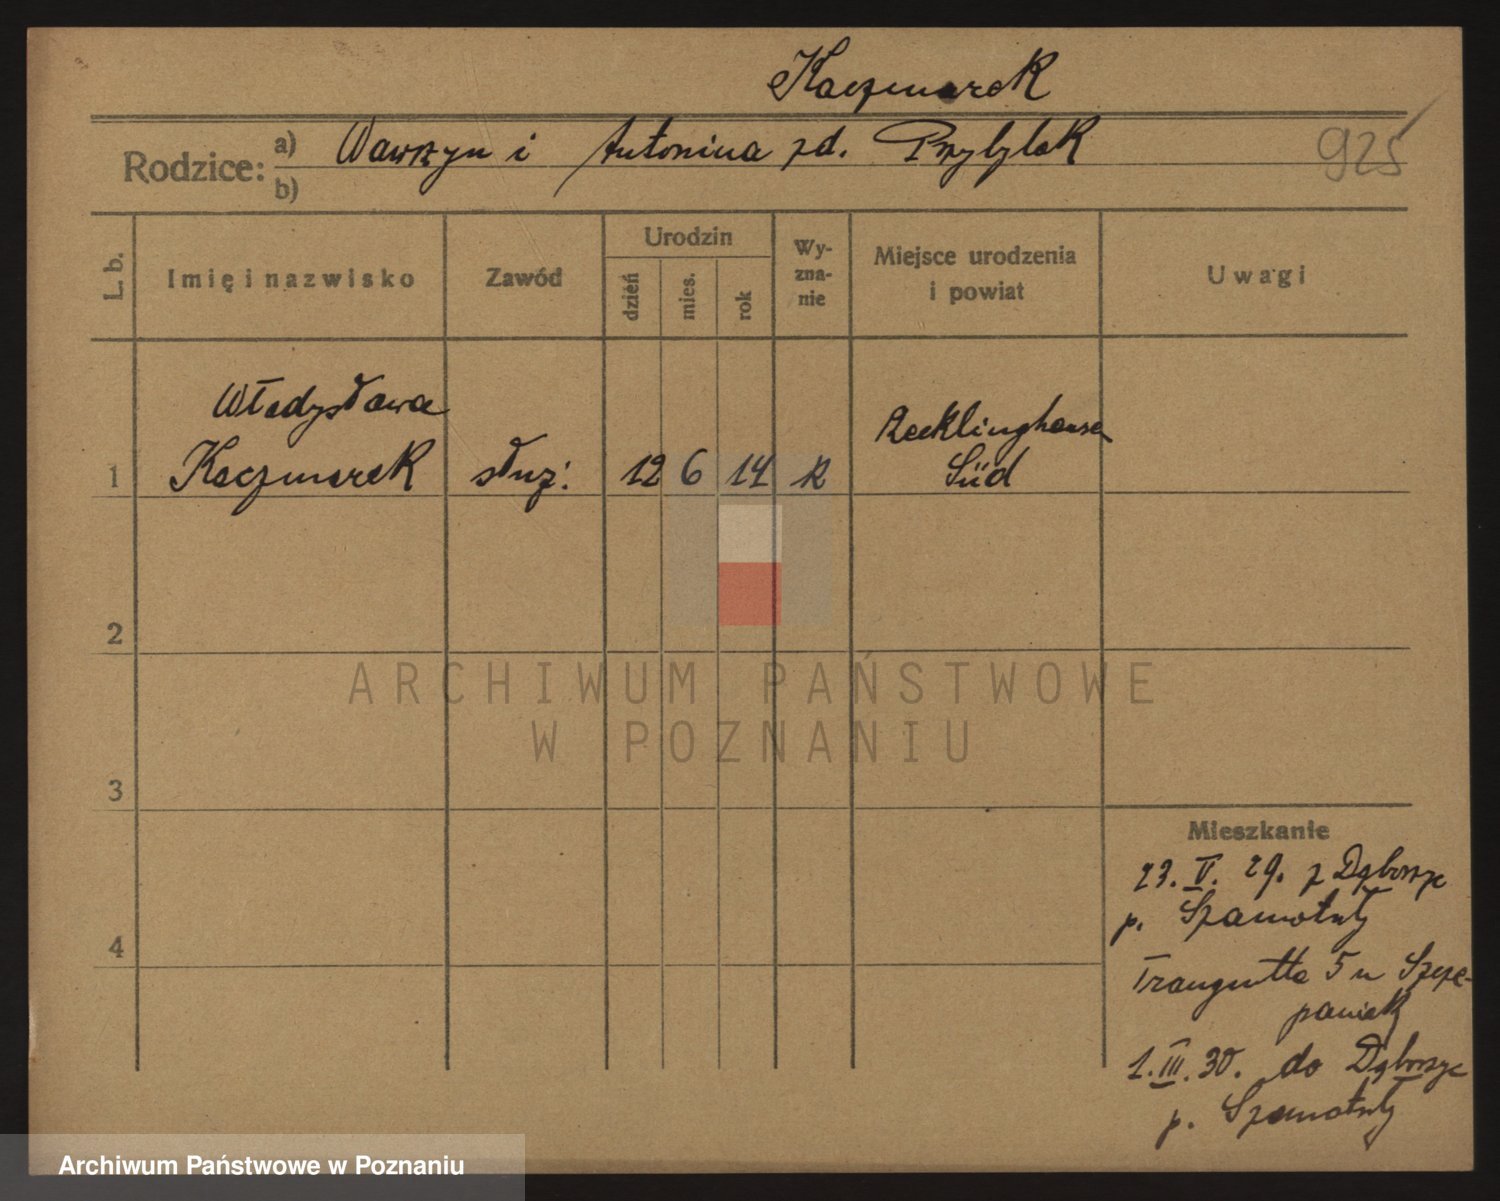 Kaczmarek
Rodzice: a) Wawrzyn i Antonina zd. Przybylak
b)
925
L. b.
Imię i nazwisko
Zawód
Urodzin
dzień
mies.
rok
Wy-
zna-
nie
Miejsce urodzenia
i powiat
Uwagi
Władysława
1 Kaczmarek służ: 12 6 14 R Recklinghausen
Süd
2
ARCHIWUM PAŃSTWOWE
W POZNANIU
3
Mieszkanie
23. V. 29. z
p. Szamotuły
4
Traugutta 5 u Szcze-
paniak
1. III. 30. do
p. Szamotuły
Archiwum Państwowe w Poznaniu